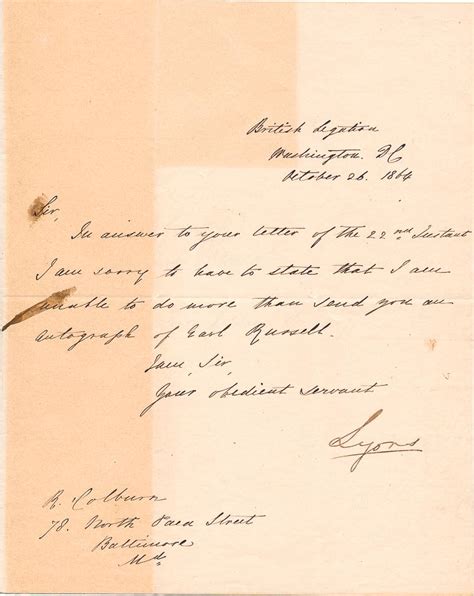 British Legation
Washington. DC
October 26. 1864
Sir,
In answer to your letter of the 22nd Instant
I am sorry to have to state that I am
unable to do more than send you an
autograph of Earl Russell.
I am, Sir,
Your obedient servant
Lyons
R. Colburn
78. North Paca Street
Baltimore
Md